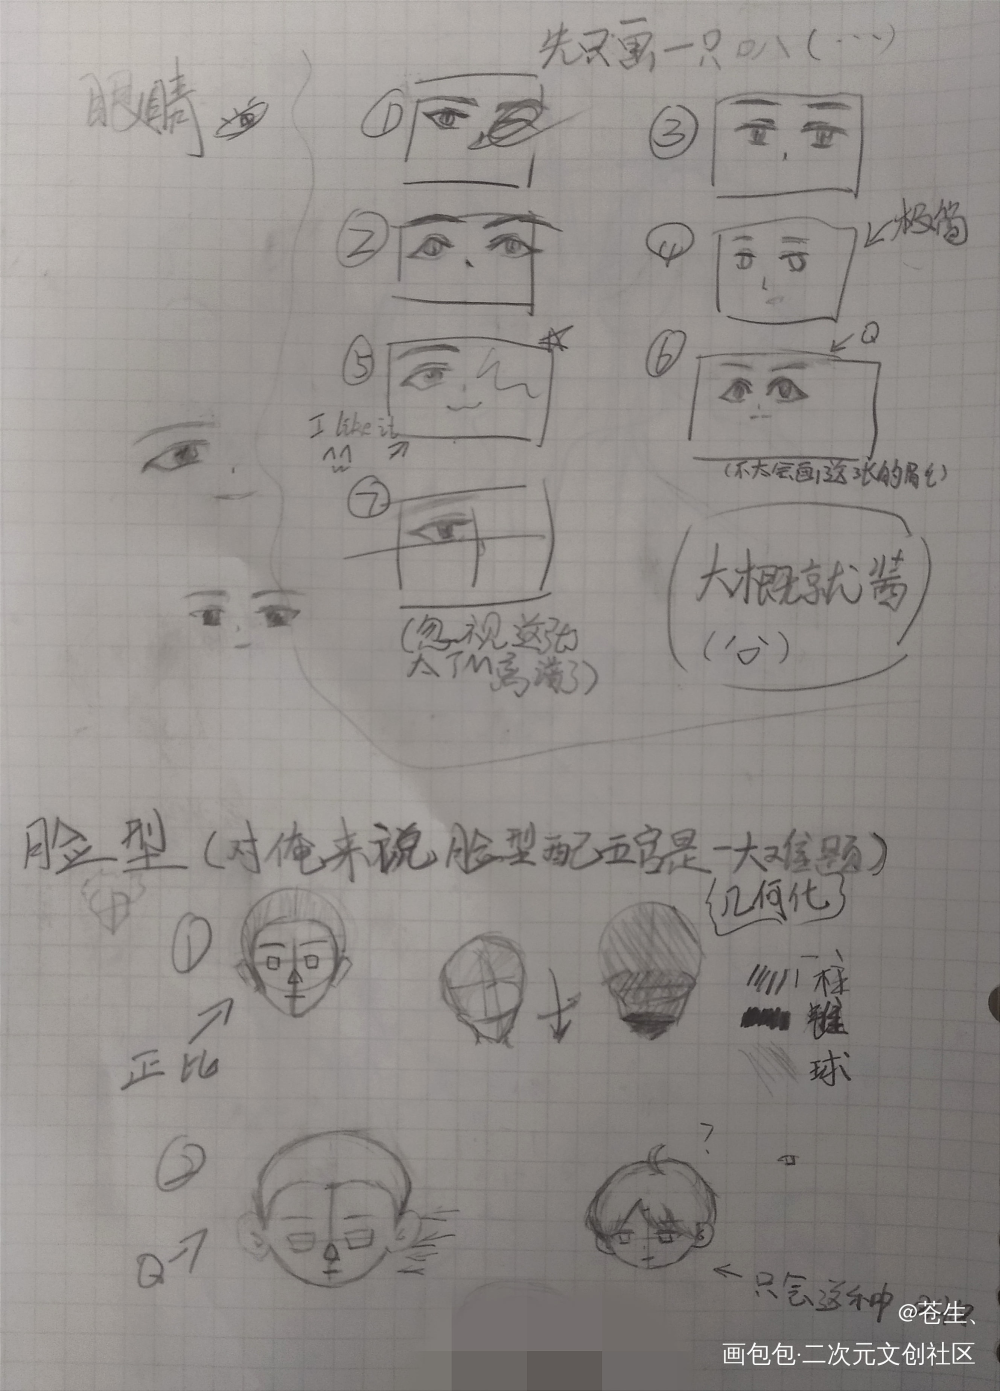 先只画一只
眼睛
①
③
②
④
极简
⑤
⑥
Q
I like it
(不太会画这张的眉毛)
⑦
(忽视这张
太TM高清了)
大概就酱
脸型(对俺来说脸型配五官是一大难题)
几何化
①
柱
锥
球
正比
②
?
Q
只会这种
@苍生、
画包包·二次元文创社区